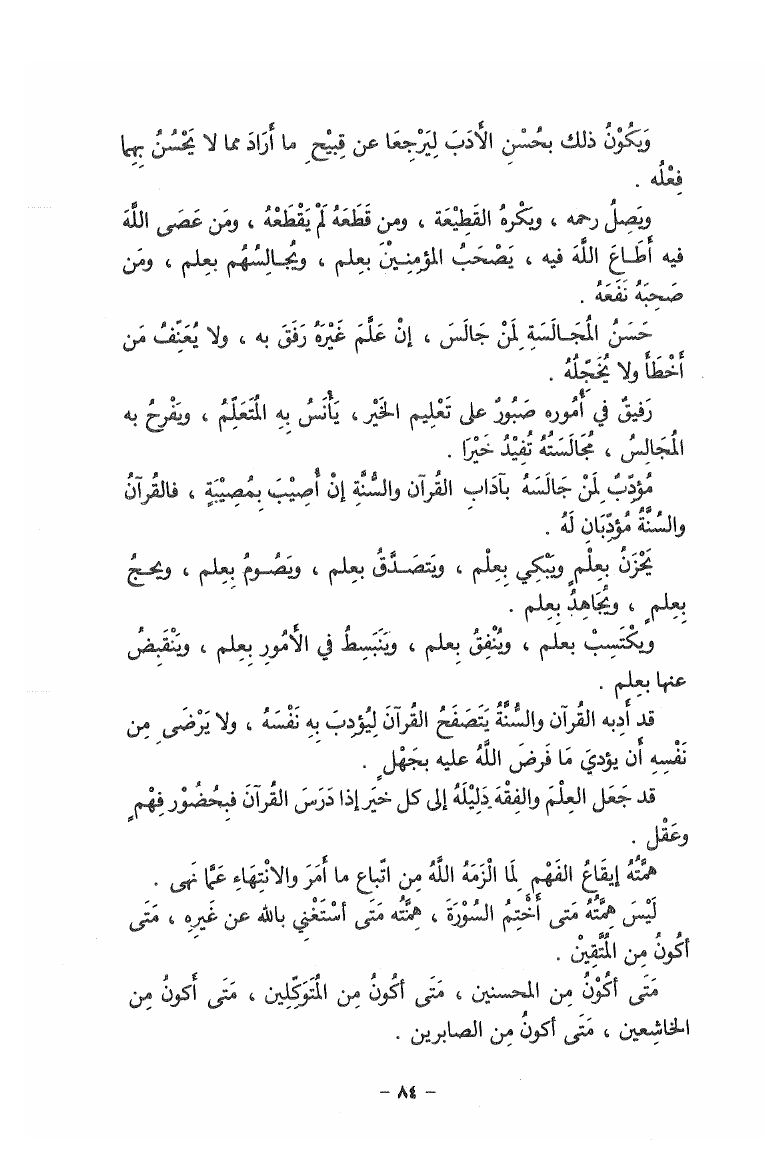 وَيَكُوْنُ ذلك بحُسْنِ الأَدَبَ لِيَرْجِعَا عن قِبيْح ما أَرَادَ مما لا يَحْسُنُ بِهِما
فِعْلُه .
ويَصِلُ رحمه ، ويَكْرهُ القَطِيْعَة ، ومن قَطَعَهُ لَمْ يَقْطَعْهُ ، ومَن عَصَى اللَّهَ
فيه أَطَـاعَ اللَّهَ فيه ، يَصْحَبُ المؤمِنِـيْنَ بعِلم ، ويُجـالِسُهُم بعِلم ، ومَن
صَحِبَهُ نَفَعَهُ .
حَسَنُ المُجَـالَسَةِ لِمَنْ جَالَسَ ، إنْ عَلَّمَ غَيْرَهُ رَفَقَ به ، ولا يُعَنِّفُ مَن
أَخْطَأَ ولا يُخَجِّلُهُ .
رَفيقٌ في أُموره صَبُورٌ على تَعْلِيم الخَيْر ، يَأْنَسُ بِهِ المُتَعَلِّمُ ، ويَفْرحُ به
المُجَالِسُ ، مُجَالَسَتُهُ تُفِيْدُ خَيْرَا .
مُؤدِّبٌ لِمَنْ جَالَسَهُ بآدَابِ القُرآن والسُّنَّةِ إنْ أُصِيْبَ بِمُصِيْبَةٍ ، فالقُرآنُ
والسُنَّةُ مُؤدِّبَانِ لَهُ .
يَحْزَنُ بعِلْمٍ ويَبْكِي بِعِلْم ، ويَتصَـدَّقُ بعِلم ، ويَصُـومُ بِعِلم ، ويحـجُ
بِعِلمٍ ، ويُجَاهِدُ بِعِلم .
ويكْتَسِبْ بعِلم ، ويُنْفِقُ بعِلم ، وَيَنْبَسِطُ في الأَمُورِ بِعِلم ، ويَنْقَبِضُ
عنها بعِلم .
قد أَدِبه القُرآن والسُّنَّةُ يَتَصَفَحُ القُرآنَ لِيُؤدِبَ بِهِ نَفْسَهُ ، ولا يَرْضَى مِن
نَفْسِهِ أَن يؤديَ مَا فَرضَ اللَّهُ عليه بجَهْلٍ .
قد جَعَل العِلْمَ والفِقْهَ دَلِيْلَهُ إلى كل خيَر إذا دَرَسَ القُرآنَ فبِحُضُوْر فِهْمٍ
وعَقْل .
هِمَّتُهُ إيقَاعُ الفَهْمِ لِمَا الْزَمَهُ اللَّهُ مِن اتّباع ما أَمَرَ والانْتهَاءِ عَمَّا نَهى .
لَيْسَ هِمَّتُهُ مَتى أَخْتِمُ السُوْرَةَ ، هِمَّتُه مَتَى أسْتَغْنِي بالله عن غَيرِهِ ، مَتَى
أكونُ مِن المُتَّقِيْنْ .
مَتَى أكُوْنُ مِن المحسنين ، مَتَى أكُونُ مِن المُتَوَكِّلِين ، مَتَى أَكونُ مِن
الخاشِعين ، مَتَى أكونُ مِن الصابرين .
- ٨٤ -